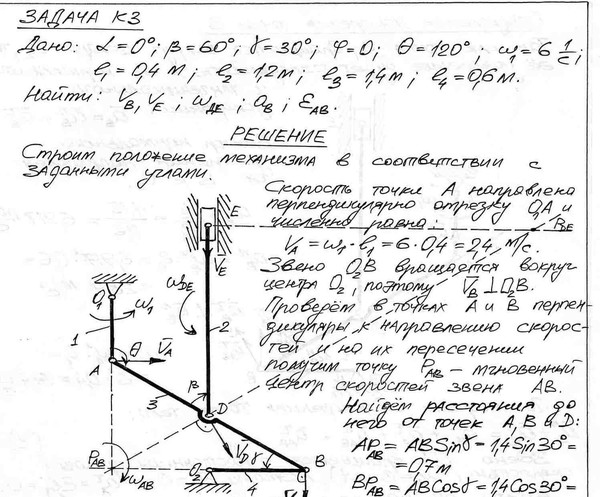 ЗАДАЧА К3
Дано: α=0°; β=60°; γ=30°; φ=0; θ=120°; ω₁=6 1/с;
l₁=0,4 м; l₂=1,2м; l₃=1,4м; l₄=0,6м.
Найти: V_B, V_E; ω_DE; a_B; ε_AB.
РЕШЕНИЕ
Строим положение механизма в соответствии с
заданными углами.
Скорость точки А направлена
перпендикулярно отрезку O₁A и
численно равна:
V_A = ω₁·l₁ = 6·0,4 = 2,4 м/с.
Звено O₂B вращается вокруг
центра O₂, поэтому V̄_B ⊥ O₂B.
Проведём в точках А и В перпен-
дикуляры к направлению скорос-
тей и на их пересечении
получим точку P_AB – мгновенный
центр скоростей звена АВ.
Найдём расстояния до
него от точек А, В и D:
AP_AB = AB Sinγ = 1,4 Sin30° =
= 0,7 м
BP_AB = AB Cosγ = 1,4 Cos30° =
E
P_DE
V̄_E
ω_DE
O₁
ω₁
1
2
θ
V̄_A
A
3
β
D
P_AB
V̄_D
γ
ω_AB
O₂
4
B